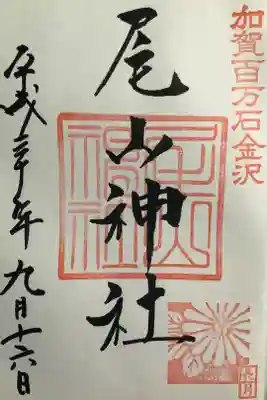 加賀百万石金沢
尾山神社
尾山神社
平成三十年九月十六日